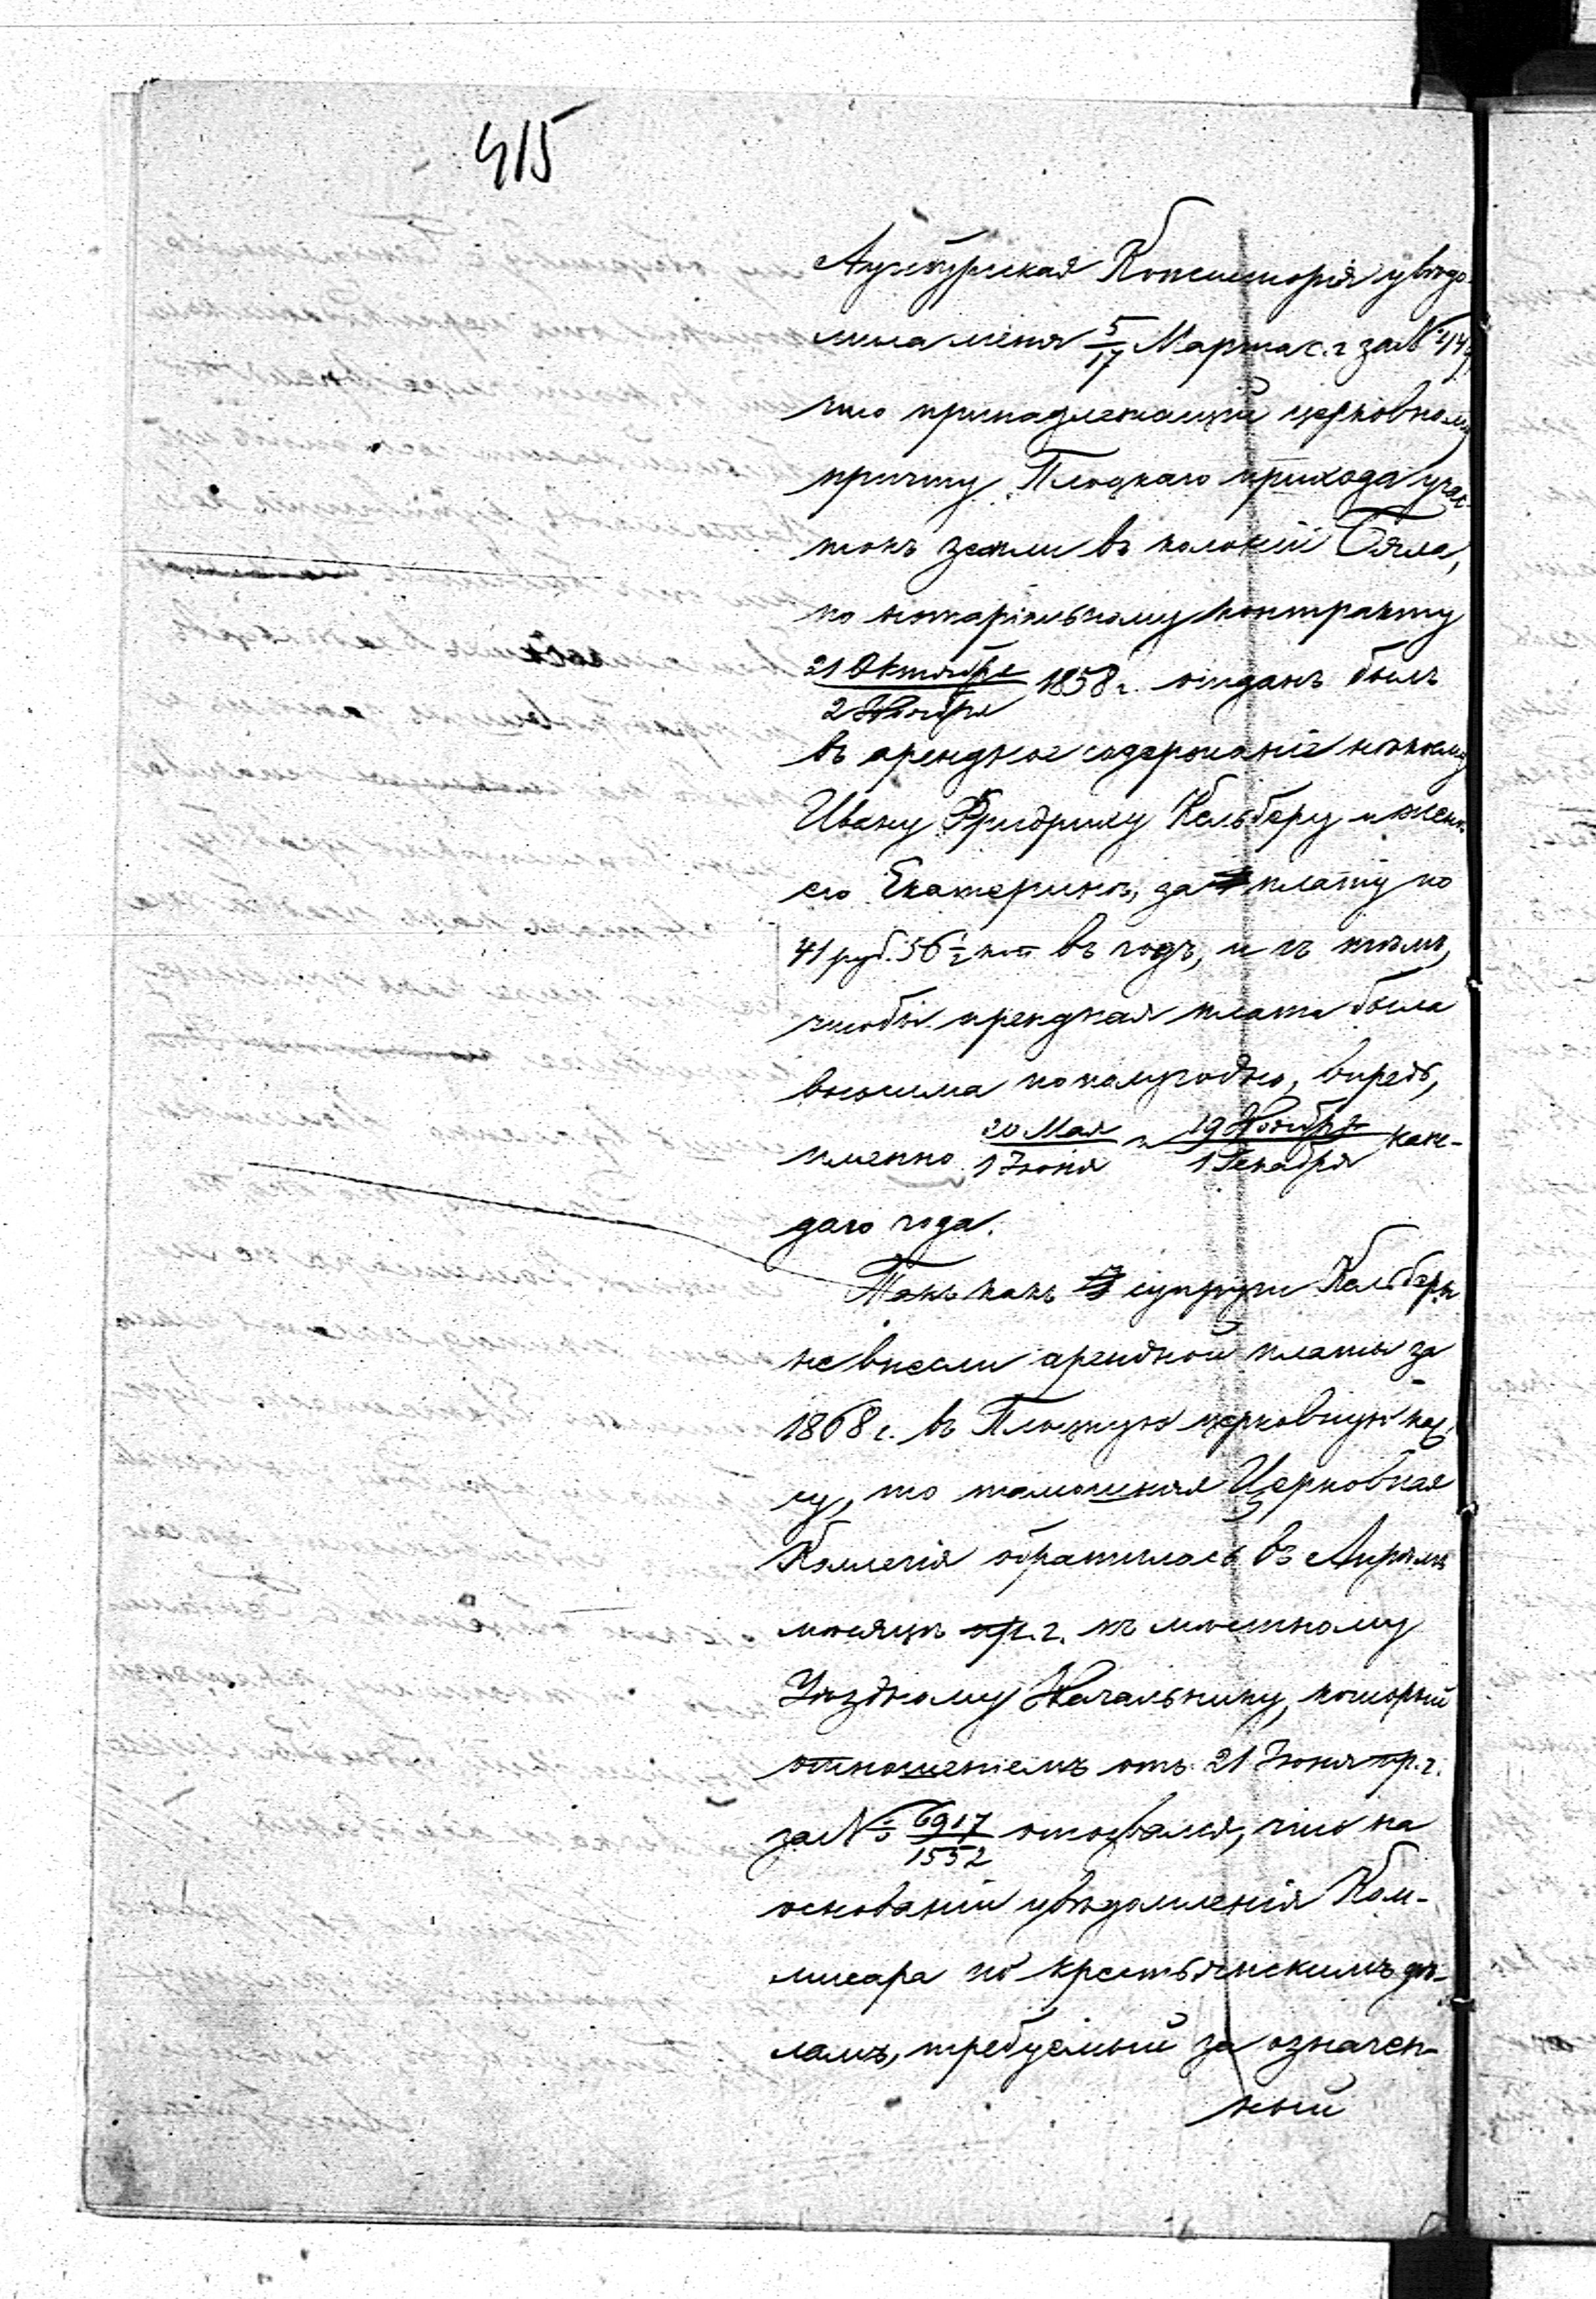 415
Аугсбургская Консисторія увѣдо-
мила меня 5/17 Марта с. г. за №
что принадлежащій церковному
причту Плоцкаго прихода учас-
токъ земли въ колоніи Бяла,
по нотаріальному контракту
21 Октября / 2 Ноября 1858 г. отданъ былъ
въ арендное содержаніе нѣкоему
Ивану Фридриху Кельберу и женѣ
его Екатеринѣ, за плату по
41 руб. 56 1/2 коп въ годъ, и съ тѣмъ,
чтобы арендная плата была
вносима по полугодно, впредь,
именно 20 Мая / 1 Іюня и 19 Ноября / 1 Декабря каж-
даго года.
Такъ какъ супруги Кельберъ
не внесли арендной платы за
1868 г. въ Плоцкую церковную кас-
су, то тамошняя Церковная
Коллегія обратилась въ Апрѣлѣ
мѣсяцѣ пр. г. къ мѣстному
Уѣздному Начальнику, который
отношеніемъ отъ 21 Іюня пр. г.
за № 6917/1552 отозвался, что на
основаніи увѣдомленія Ком-
мисара по крестьянскимъ дѣ-
ламъ, требуемый за означен-
ный